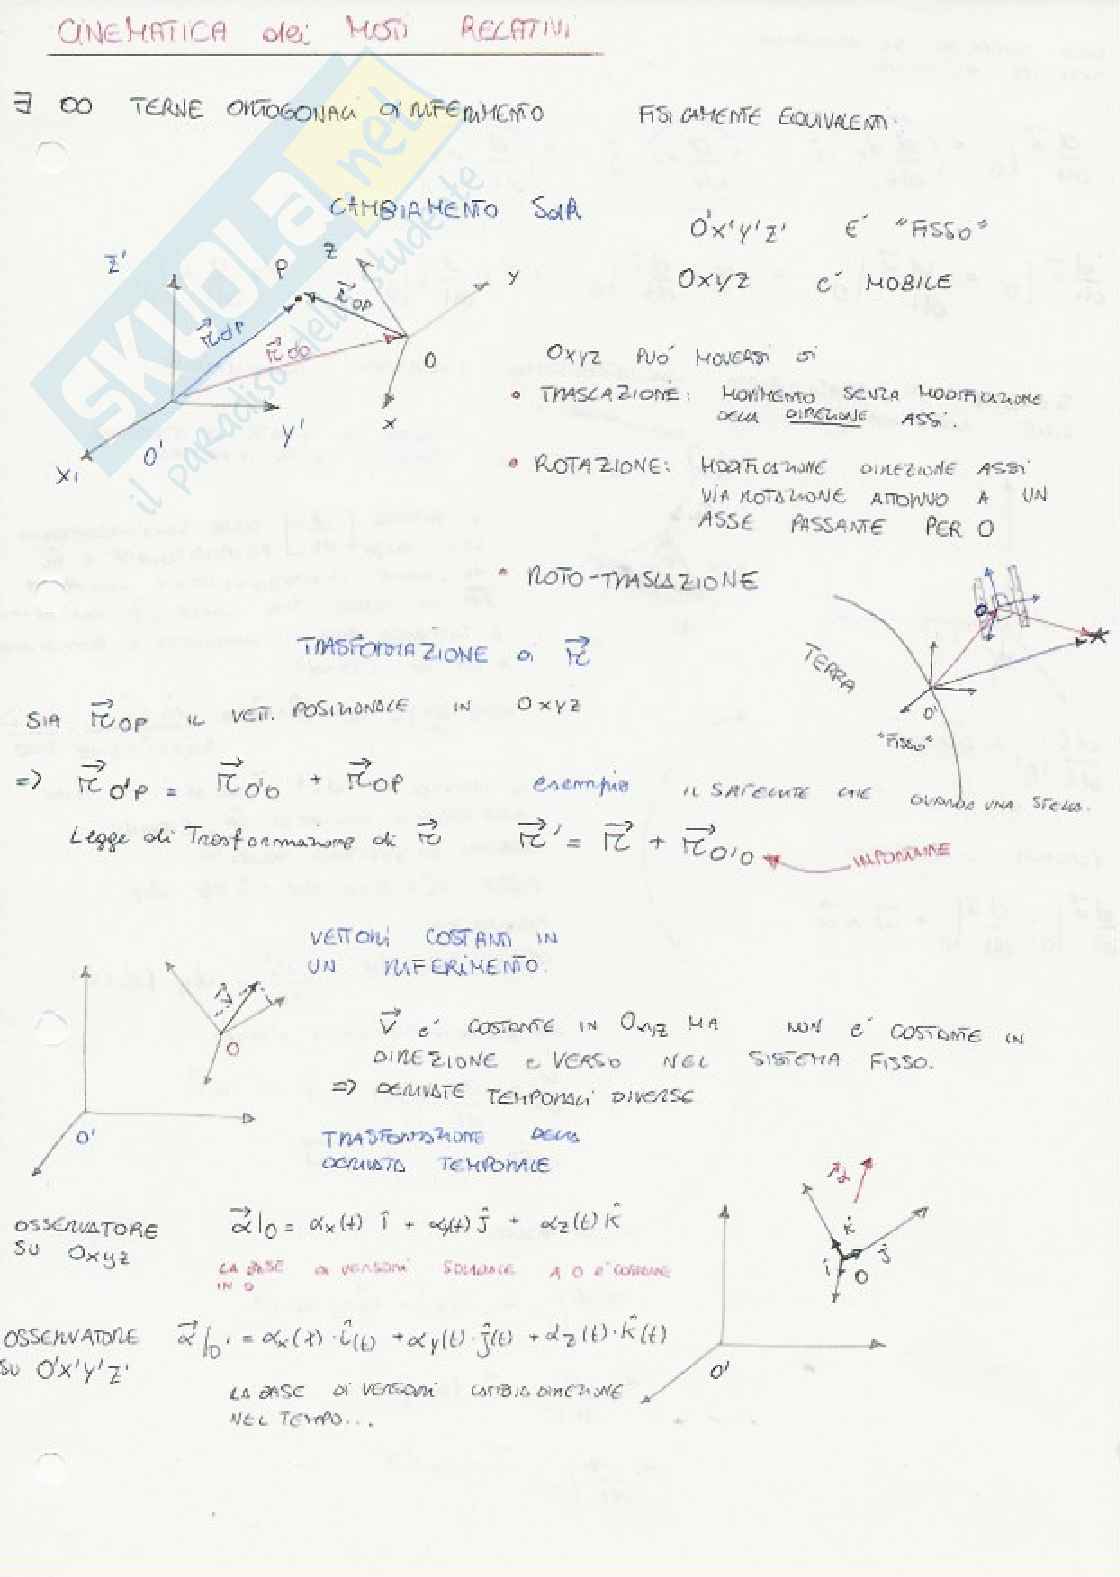 CINEMATICA dei MOTI RELATIVI
∃ ∞ TERNE ORTOGONALI DI RIFERIMENTO FISICAMENTE EQUIVALENTI.
CAMBIAMENTO SdR
O'x'y'z' E' "FISSO"
Oxyz E' MOBILE
z'
P
z
y
r⃗O'P
r⃗OP
r⃗O'O
O
x
y'
O'
x'
Oxyz PUO' MUOVERSI DI
• TRASLAZIONE: MOVIMENTO SENZA MODIFICAZIONE
DELLA DIREZIONE ASSI.
• ROTAZIONE: MODIFICAZIONE DIREZIONE ASSI
VIA ROTAZIONE ATTORNO A UN
ASSE PASSANTE PER O
• ROTO-TRASLAZIONE
TRASFORMAZIONE DI r⃗
TERRA
O
O'
"FISSO"
SIA r⃗OP IL VETT. POSIZIONALE IN Oxyz
=> r⃗O'P = r⃗O'O + r⃗OP
esempio IL SATELLITE CHE GUARDA UNA STELLA.
Legge di Trasformazione di r⃗ r⃗' = r⃗ + r⃗O'O
VETTORI COSTANTI IN
UN RIFERIMENTO.
V⃗
O
O'
V⃗ e' COSTANTE IN Oxyz MA NON e' COSTANTE IN
DIREZIONE E VERSO NEL SISTEMA FISSO.
=> DERIVATE TEMPORALI DIVERSE
TRASFORMAZIONE DELLA
DERIVATA TEMPORALE
OSSERVATORE
SU Oxyz
α⃗|O = αx(t) î + αy(t) ĵ + αz(t) k̂
LA BASE DI VERSORI SOLIDALE A O E' COSTANTE
IN O
OSSERVATORE
SU O'x'y'z'
α⃗|O' = αx(t)·î(t) + αy(t)·ĵ(t) + αz(t)·k̂(t)
LA BASE DI VERSORI CAMBIA DIREZIONE
NEL TEMPO...
α⃗
k̂
ĵ
î
O
O'
SKUOLA.net
il paradiso dello studente